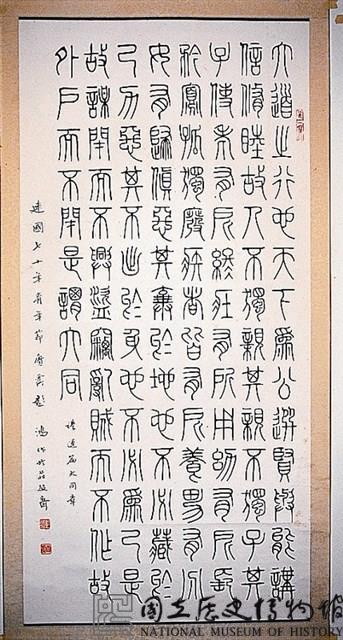 大道之行也天下為公選賢與能講
信脩睦故人不獨親其親不獨子其
子使老有所終壯有所用幼有所長
矜寡孤獨廢疾者皆有所養男有分
女有歸貨惡其棄於地也不必藏於
己力惡其不出於身也不必為己是
故謀閉而不興盜竊亂賊而不作故
外戶而不閉是謂大同
禮運篇大同章
建國七十年青年節
國立歷史博物館
NATIONAL MUSEUM OF HISTORY